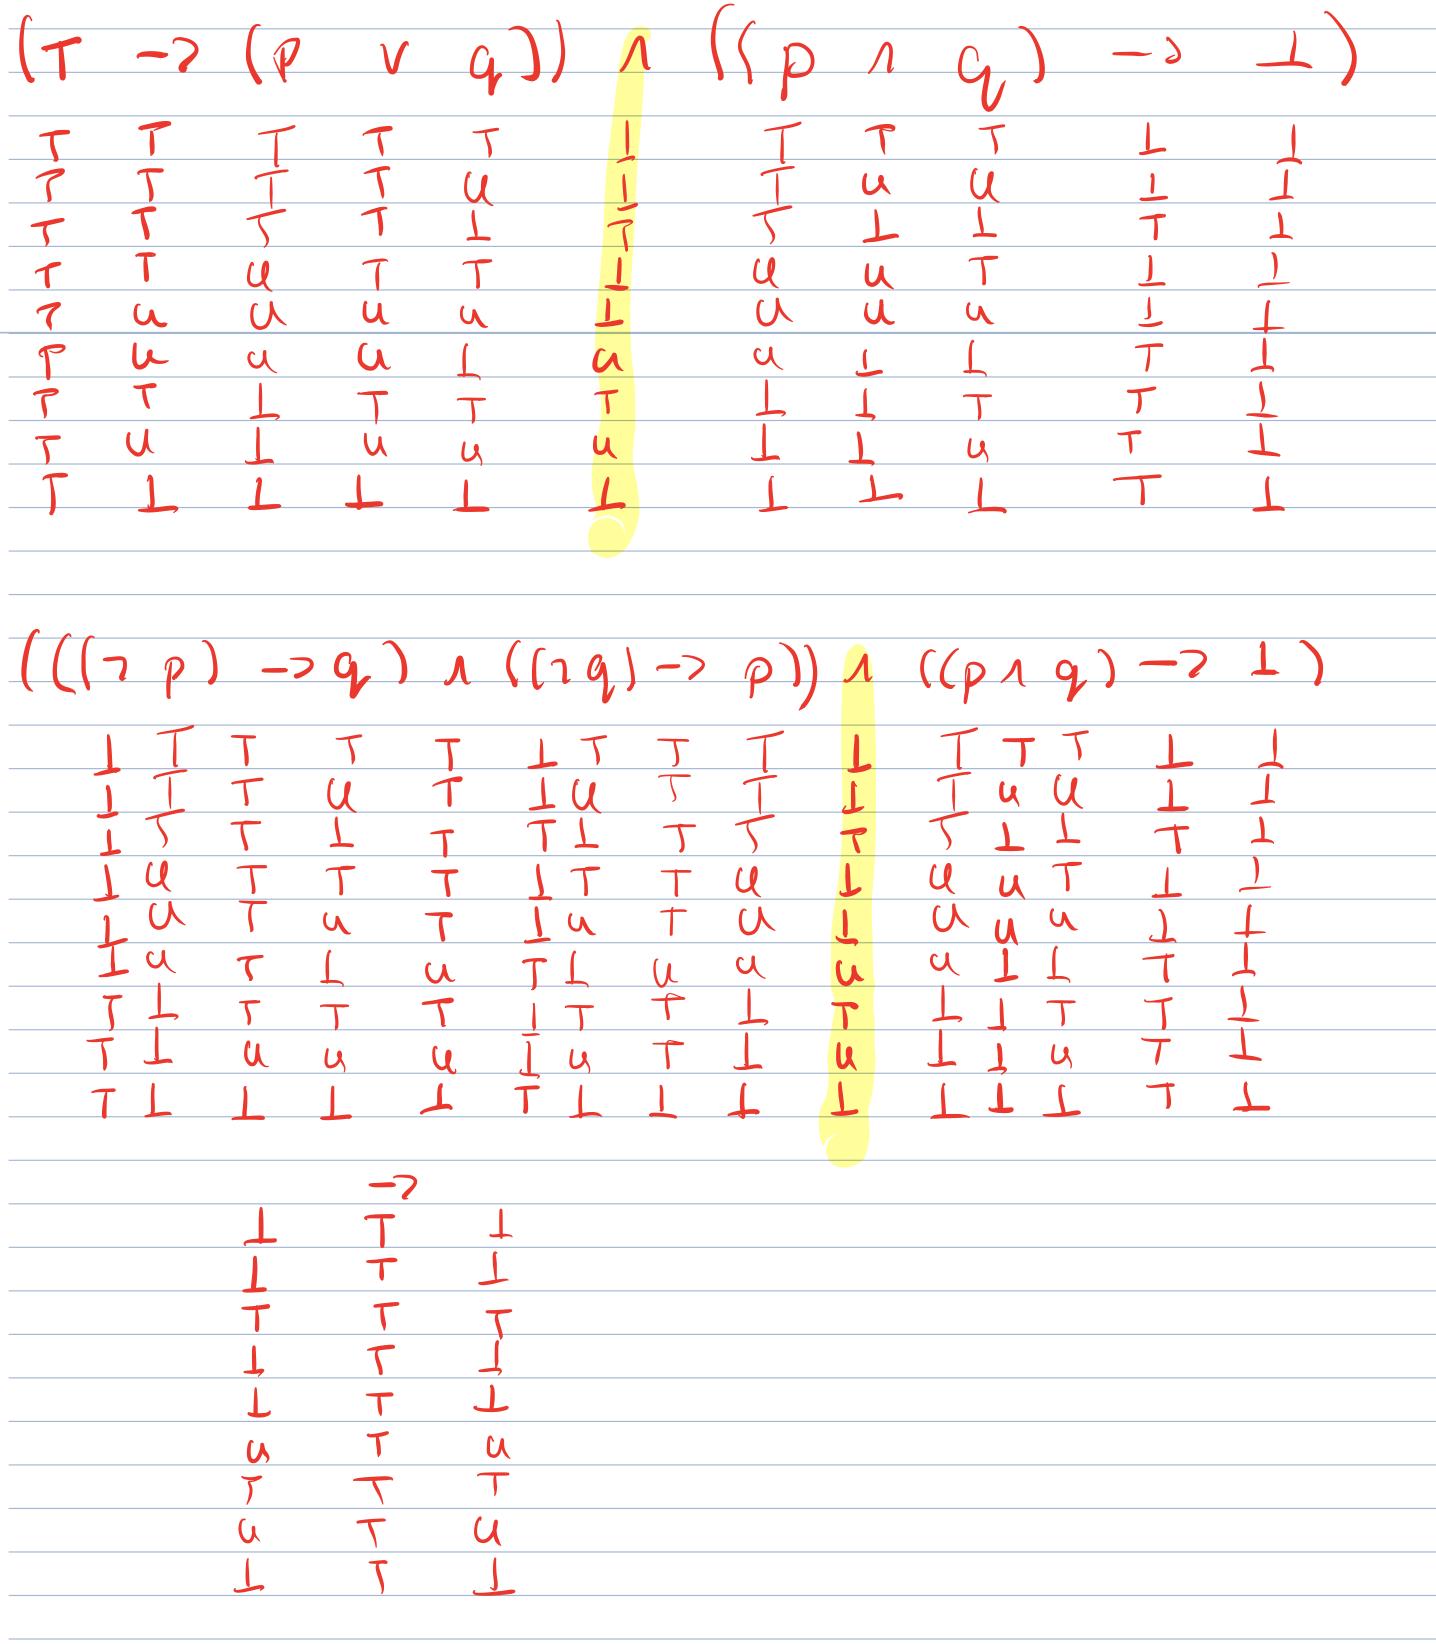 (T -> (p ∨ q)) ∧ ((p ∧ q) -> ⊥)
T T T T T ⊥ T T T ⊥ ⊥
T T T T u ⊥ T u u ⊥ ⊥
T T T T ⊥ T T ⊥ ⊥ T ⊥
T T u T T ⊥ u u T ⊥ ⊥
T u u u u ⊥ u u u ⊥ ⊥
T u u u ⊥ u u ⊥ ⊥ T ⊥
T T ⊥ T T T ⊥ ⊥ T T ⊥
T u ⊥ u u u ⊥ ⊥ u T ⊥
T ⊥ ⊥ ⊥ ⊥ ⊥ ⊥ ⊥ ⊥ T ⊥
(((¬ p) -> q) ∧ ((¬q) -> p)) ∧ ((p ∧ q) -> ⊥)
⊥ T T T T ⊥ T T T ⊥ T T T ⊥ ⊥
⊥ T T u T ⊥ u T T ⊥ T u u ⊥ ⊥
⊥ T T ⊥ T T ⊥ T T T T ⊥ ⊥ T ⊥
⊥ u T T T ⊥ T T u ⊥ u u T ⊥ ⊥
⊥ u T u T ⊥ u T u ⊥ u u u ⊥ ⊥
⊥ u T ⊥ u T ⊥ u u u u ⊥ ⊥ T ⊥
T ⊥ T T T ⊥ T T ⊥ T ⊥ ⊥ T T ⊥
T ⊥ u u u ⊥ u T ⊥ u ⊥ ⊥ u T ⊥
T ⊥ ⊥ ⊥ ⊥ T ⊥ ⊥ ⊥ ⊥ ⊥ ⊥ ⊥ T ⊥
->
⊥ T ⊥
⊥ T ⊥
T T T
⊥ T ⊥
⊥ T ⊥
u T u
T T T
u T u
⊥ T ⊥